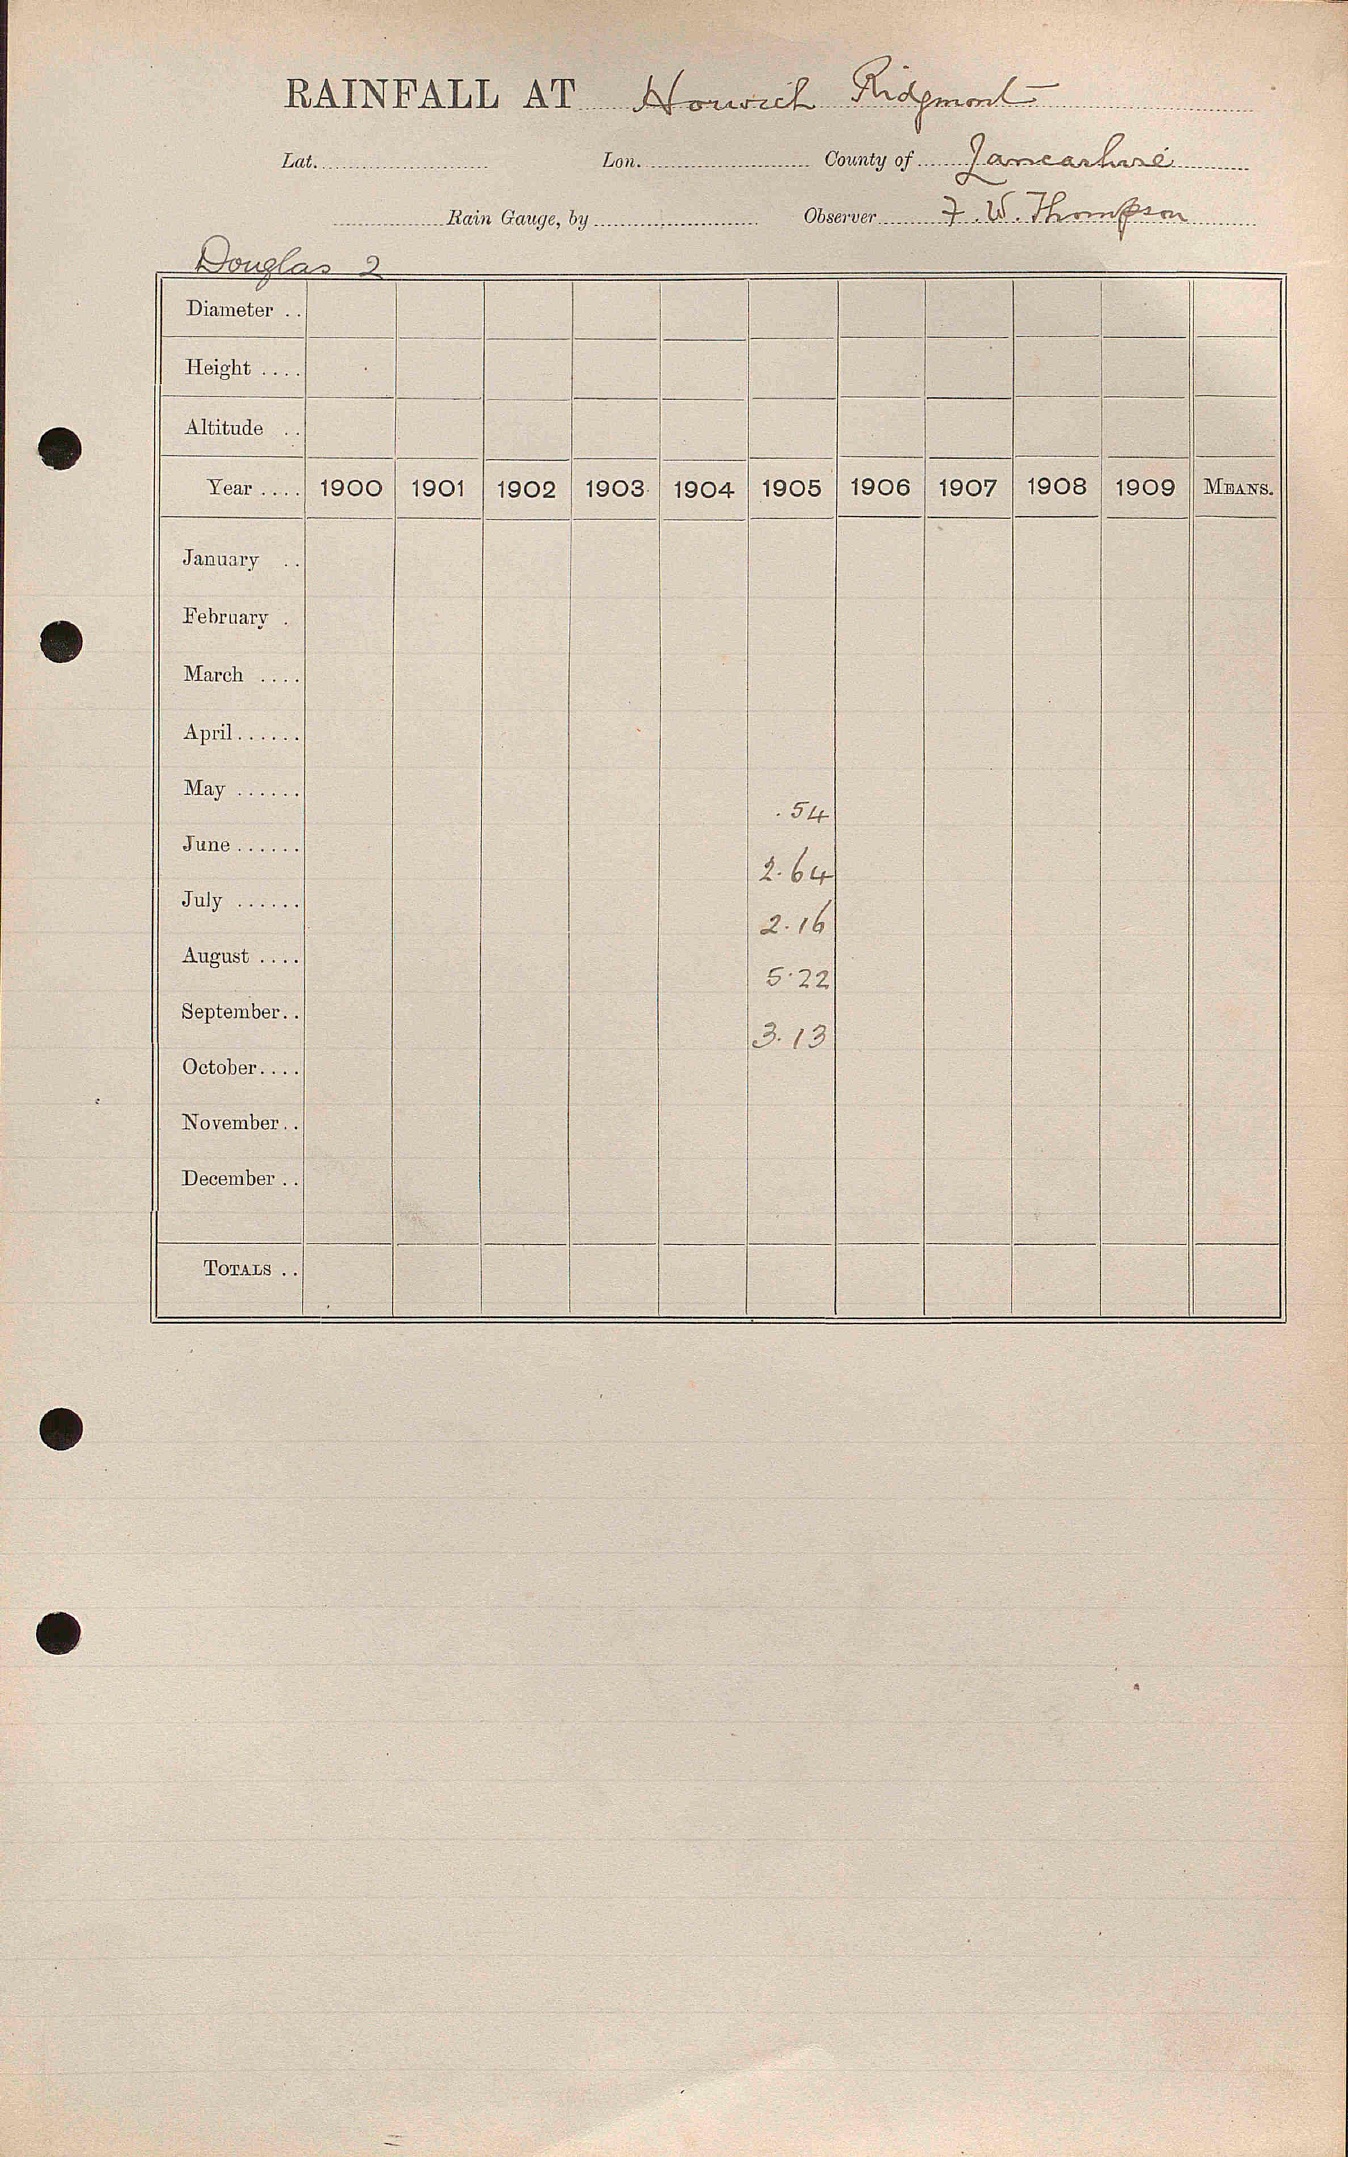 RAINFALL AT Horwich Ridgmont
Lat. Lon. County of Lancashire
Rain Gauge, by Observer F. W. Thompson
Douglas 2
Diameter ..
Height ....
Altitude ..
Year .... 1900 1901 1902 1903 1904 1905 1906 1907 1908 1909 MEANS.
January ..
February .
March ....
April ......
May ...... .54
June ...... 2.64
July ...... 2.16
August .... 5.22
September.. 3.13
October....
November..
December ..
TOTALS ..